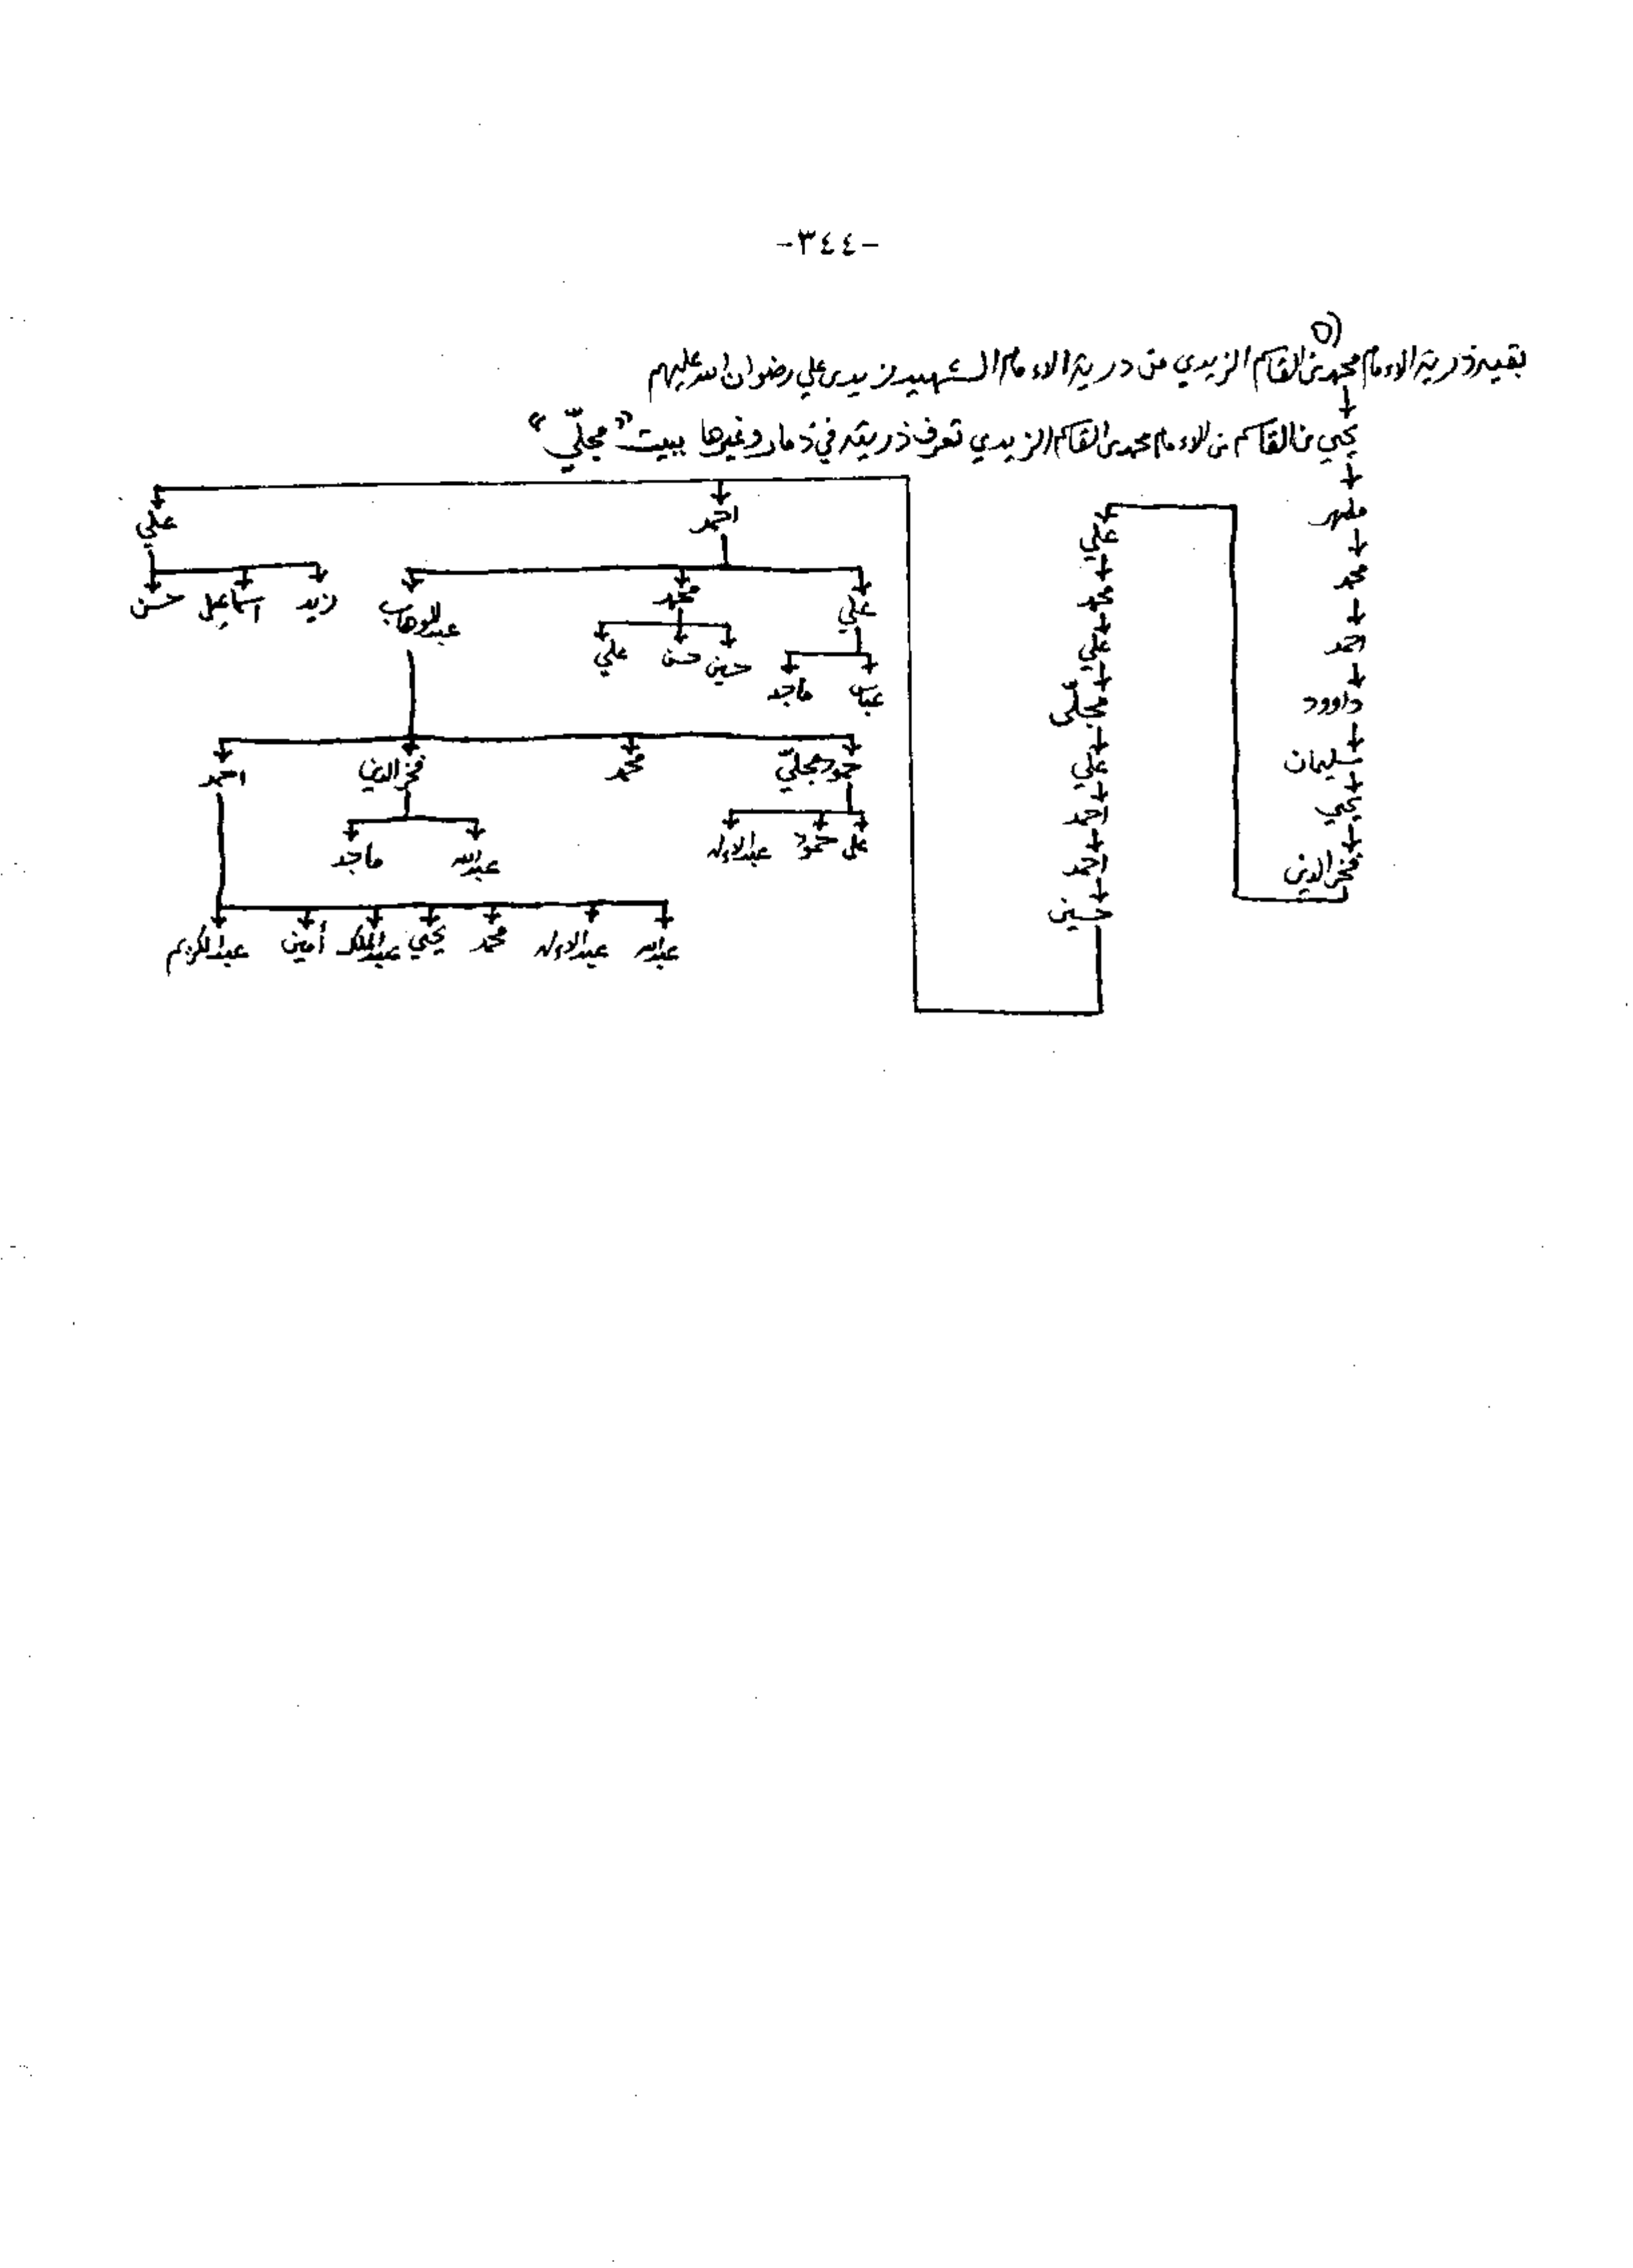 -٣٤٤-
(٥)
بقية ذرية الامام محمد بن القاسم الزيدي من ذرية الامام الشهيد زيد بن علي رضوان الله عليهم
يحيى بن القاسم بن الامام محمد بن القاسم الزيدي تعرف ذريته في ذمار وغيرها ببيت "مجلّي"
مطهر
محمد
احمد
داوود
سليمان
يحيى
فخر الدين
علي
علي
مجلّي
علي
احمد
احمد
حسين
احمد
علي
علي
محمد
عبدالوهاب
زيد
اسماعيل
حسن
عباس
ماجد
حسين
حسن
علي
حمود مجلّي
محمد
فخر الدين
احمد
علي
حمود
عبدالاله
عبدالله
ماجد
عبدالله
عبدالاله
محمد
يحيى
عبدالملك
أمين
عبدالكريم